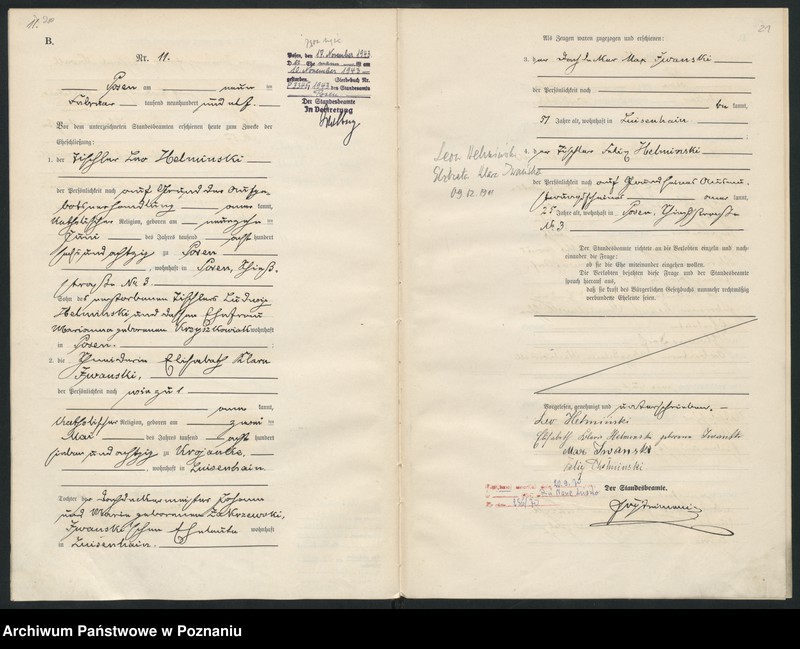 B.
Nr. 11.
Posen am neun ten
Februar tausend neunhundert und elf.
Vor dem unterzeichneten Standesbeamten erschienen heute zum Zwecke der
Eheschließung:
1. der Tischler Leo Helminski
der Persönlichkeit nach auf Grund der Aufge-
botsverhandlung kannt,
katholischer Religion, geboren am neunzehn ten
Juni des Jahres tausend acht hundert
sechs und achtzig zu Posen
, wohnhaft in Posen, Schieß-
straße No 3
Sohn des verstorbenen Tischlers Ludwig
Helminski und dessen Ehefrau
Marianna geborenen Krzyszkowiak wohnhaft
in Posen.
2. die Schneiderin Elisabeth Klara
Iwanski,
der Persönlichkeit nach wie zu 1
kannt,
katholischer Religion, geboren am zwei ten
Mai des Jahres tausend acht hundert
sieben und achtzig zu Krojanke
, wohnhaft in Luisenhain.
Tochter der Dachdeckermeister Johann
und Maria geborenen Zakrzewski,
Iwanski'schen Eheleute wohnhaft
in Luisenhain.
Posen, den 19. November 1943
10. November 1943
gestorben. Sterbebuch Nr.
1943 des Standesamts
Posen
Der Standesbeamte
In Vertretung
21
Als Zeugen waren zugezogen und erschienen:
3. der Dachdecker Max Iwanski
der Persönlichkeit nach
be kannt,
51 Jahre alt, wohnhaft in Luisenhain
4. der Tischler Felix Helminski
der Persönlichkeit nach auf Grund seines Ausmu-
sterungsscheines kannt,
25 Jahre alt, wohnhaft in Posen, Schießstraße
No 3
Leon Helminski
Iwańska
Der Standesbeamte richtete an die Verlobten einzeln und nach-
einander die Frage:
ob sie die Ehe miteinander eingehen wollen.
Die Verlobten bejahten diese Frage und der Standesbeamte
sprach hierauf aus,
daß sie kraft des Bürgerlichen Gesetzbuchs nunmehr rechtmäßig
verbundene Eheleute seien.
Vorgelesen, genehmigt und unterschrieben.
Leo Helminski
Elisabeth Klara Helminski geborene Iwanski
Max Iwanski
Felix Helminski
Der Standesbeamte.
Archiwum Państwowe w Poznaniu